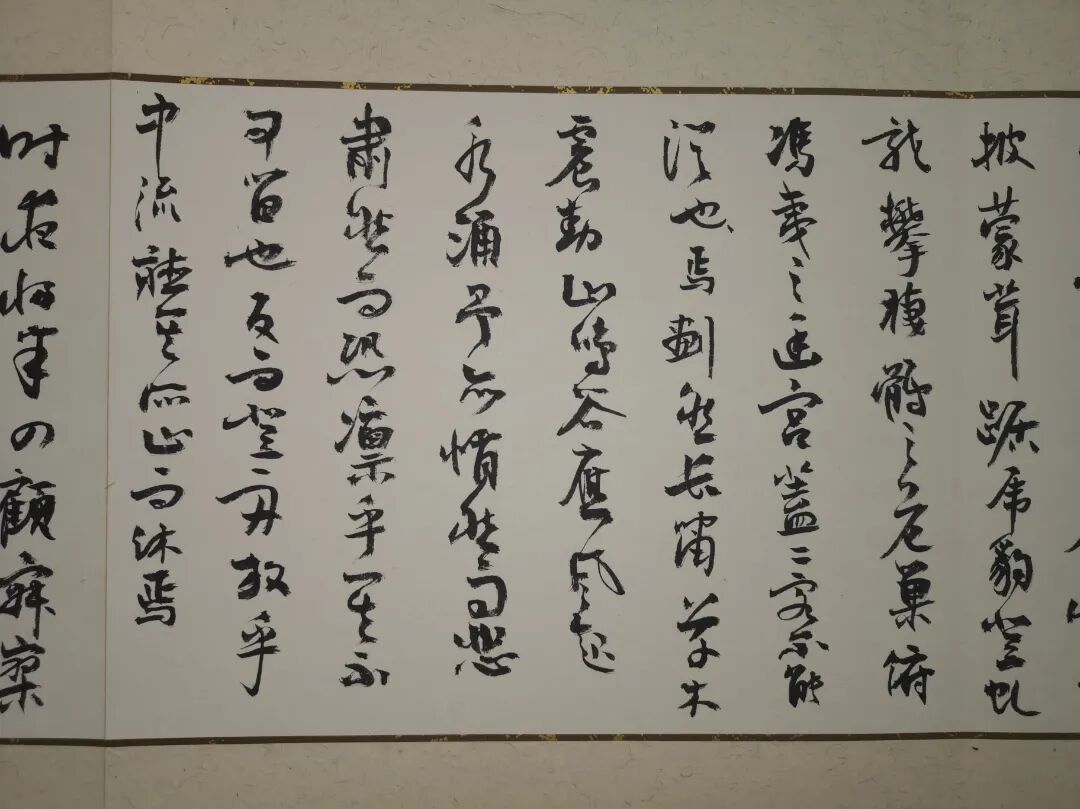 披蒙茸踞虎豹登虬
龍攀棲鶻之危巢俯
馮夷之幽宮蓋二客不能
從也焉劃然長嘯草木
震動山鳴谷應風起
水涌予亦悄然而悲
肅然而恐凜乎其不
可留也反而登舟放乎
中流聽其所止而休焉
時夜將半四顧寂寥